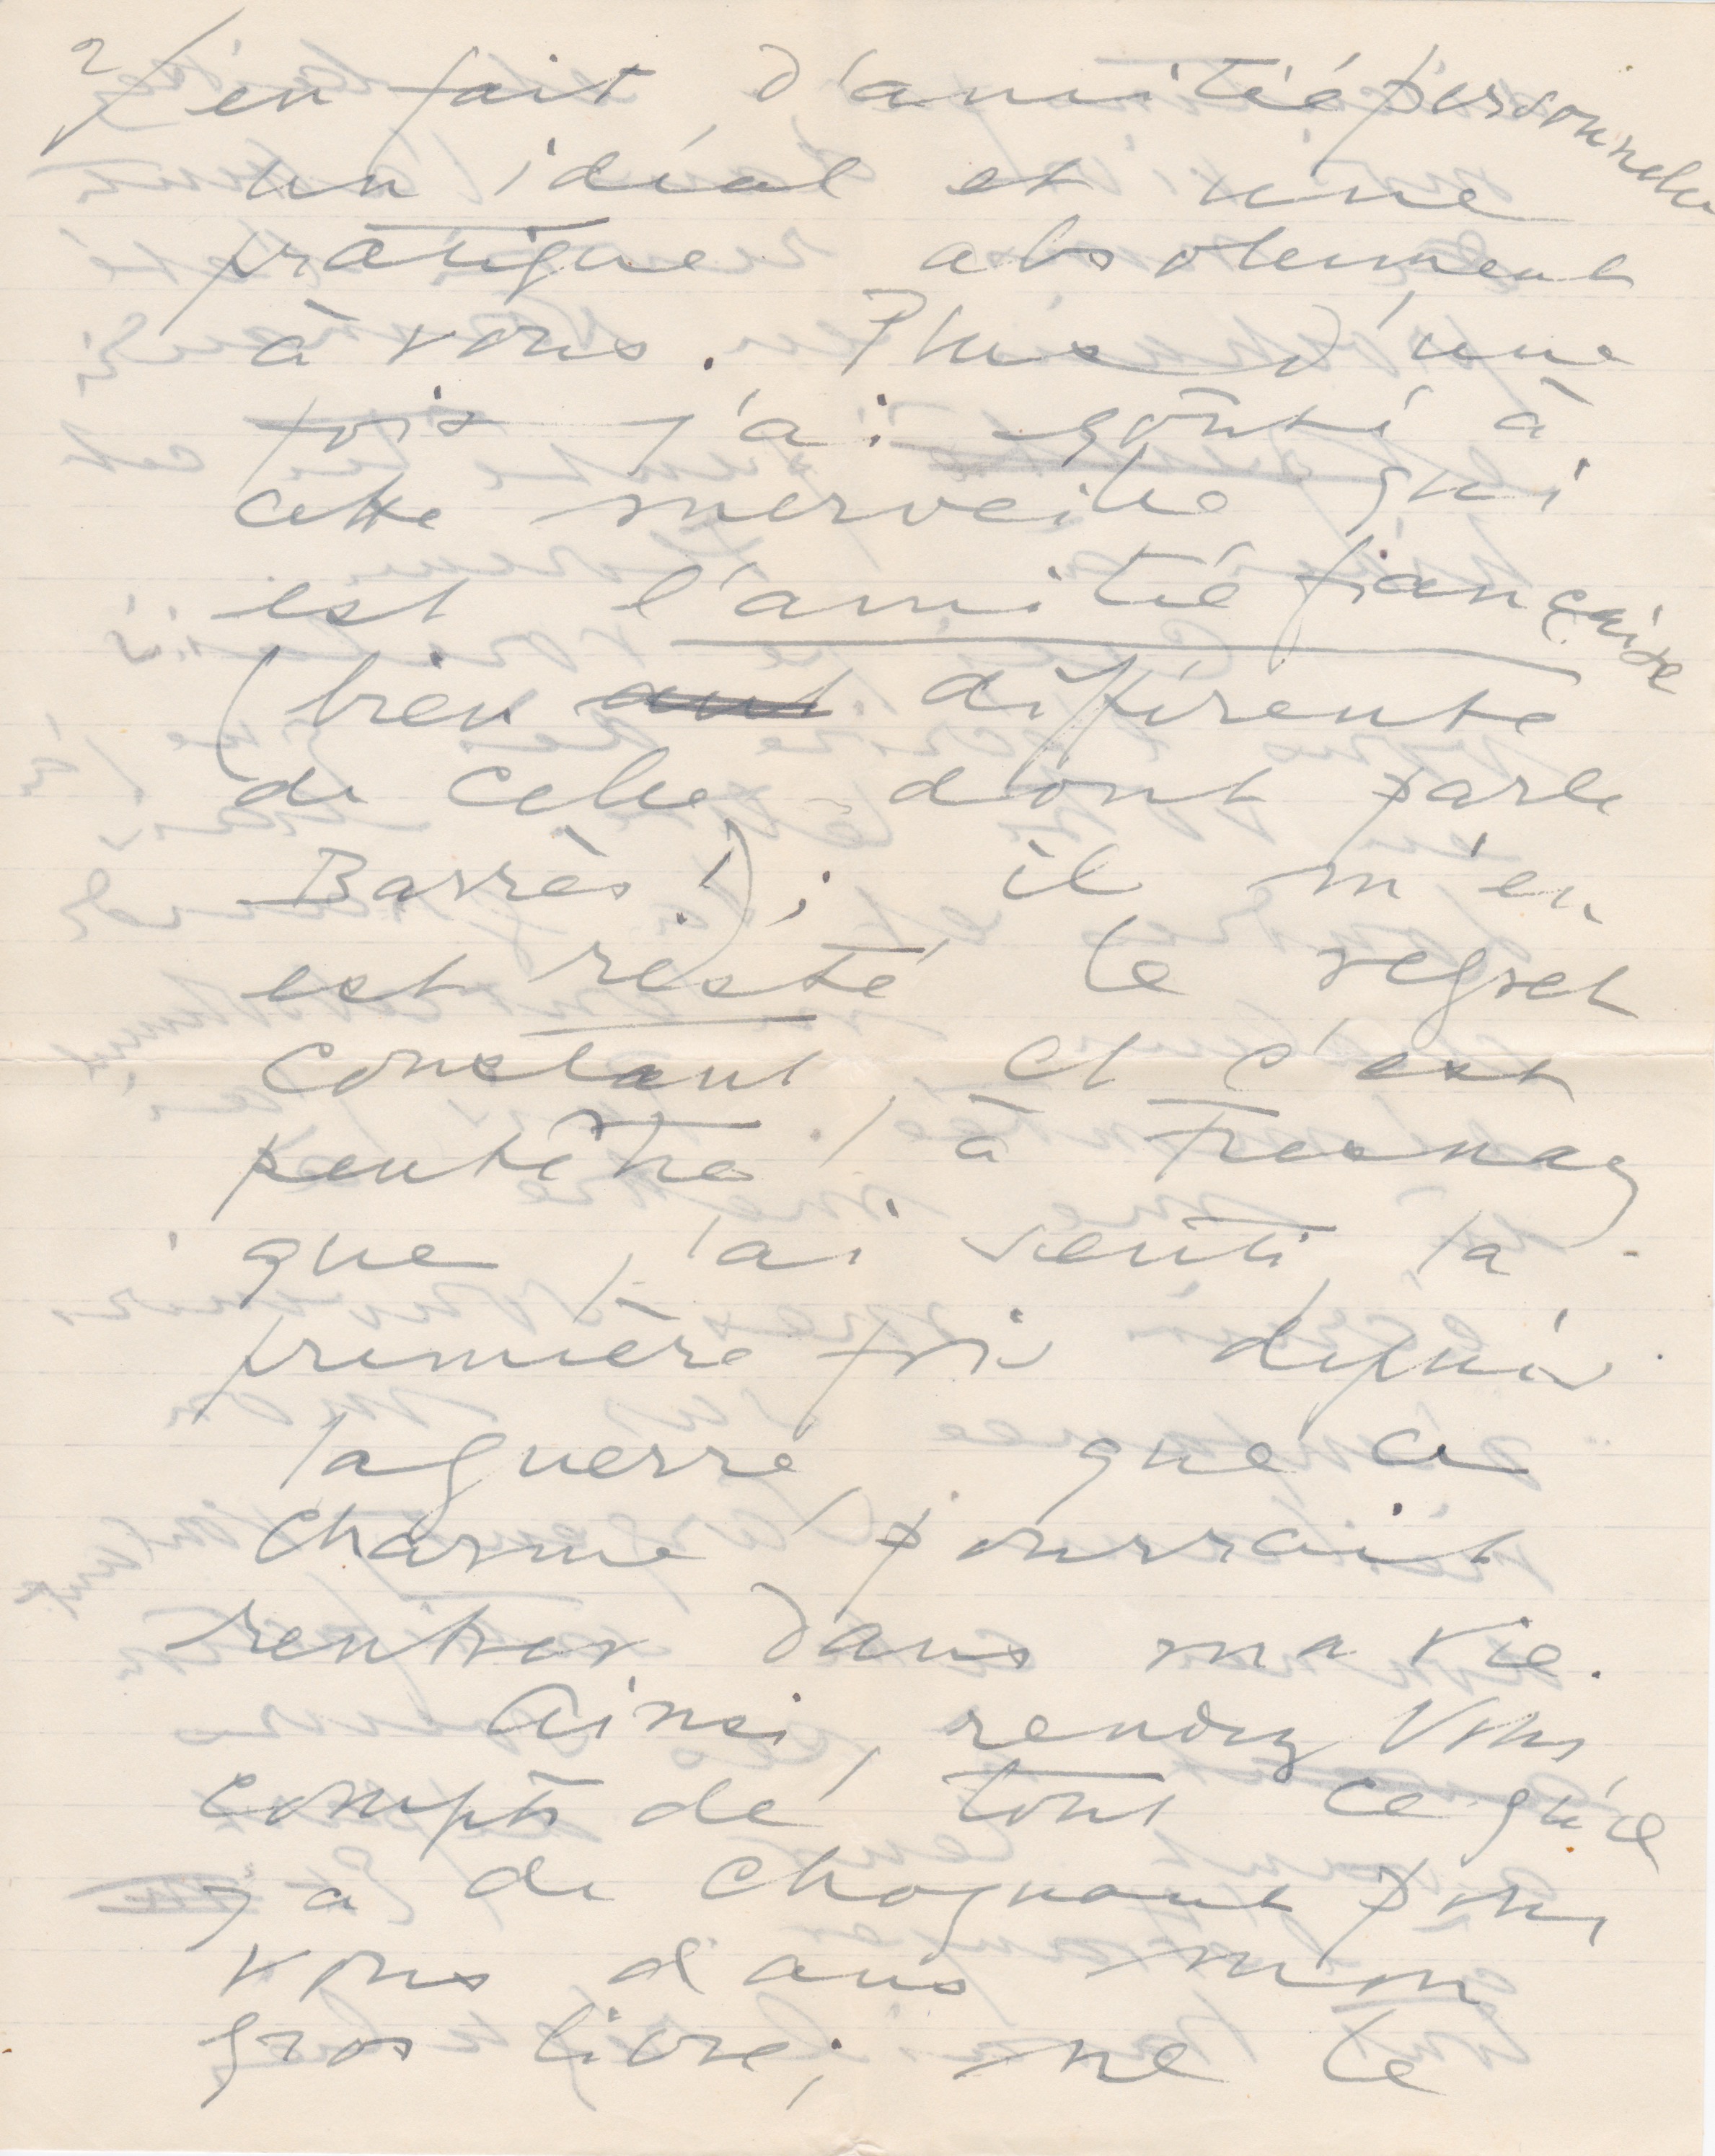 2/ en fait d'amitié personnelle
un idéal et une
pratique absolument
à vous. Plus d'une
fois j'ai goûté à
cette merveille qui
est l'amitié française
(bien aut différente
de celle dont parle
Barrès!); il m'en
est resté le regret
constant, et c'est
peutêtre à Fresnay
que j'ai senti la
première fois depuis
la guerre que ce
charme pourrait
rentrer dans ma vie.
Ainsi, rendez vous
compte de tout ce qu'il
y a de choquant pour
vous dans mon
gros livre; ne le